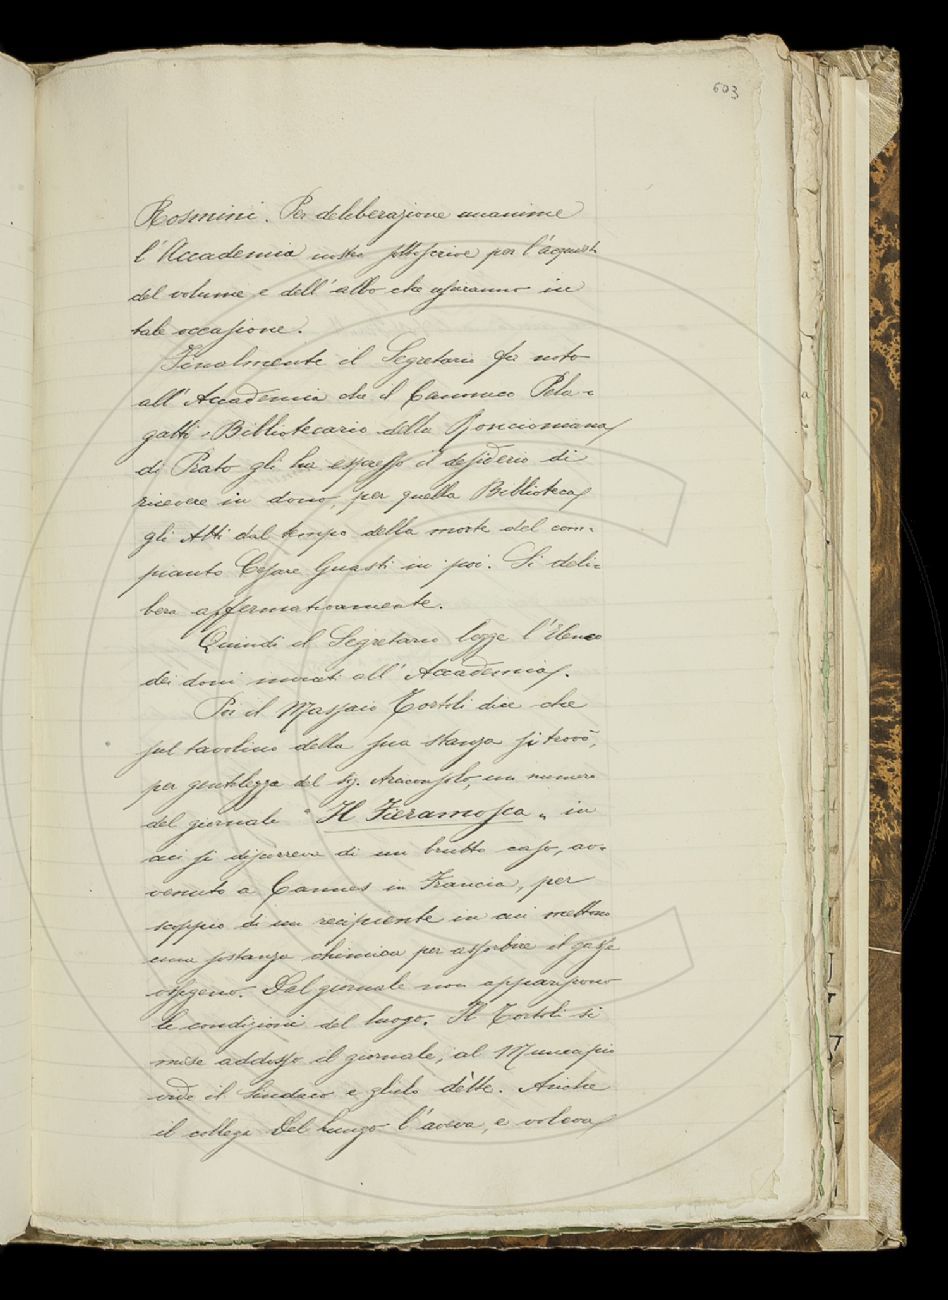 603
Rosmini. Per deliberazione unanime
l'Accademia nostra sottoscrive per l'acquisto
del volume e dell'albo che usciranno in
tale occasione.
Finalmente il Segretario fa noto
all'Accademia che il Canonico Pela-
gatti, Bibliotecario della Roncioniana
di Prato gli ha espresso il desiderio di
ricevere in dono, per quella Biblioteca
gli Atti dal tempo della morte del com-
pianto Cesare Guasti in poi. Si deli-
bera affermativamente.
Quindi il Segretario legge l'elenco
dei doni inviati all'Accademia.
Poi il Massaio Tortoli dice che
sul tavolino della sua stanza si trovò,
per gentilezza del Sig. Arciconsolo, un numero
del giornale "Il Fieramosca" in
cui si discorreva di un brutto caso, av-
venuto a Cannes in Francia, per
scoppio di un recipiente in cui mettono
una sostanza chimica per assorbire il gasse
ossigeno. Dal giornale non apparirono
le condizioni del luogo. Il Tortoli si
mise addosso il giornale; al Municipio
vide il Sindaco e glielo dètte. Anche
il collega Del Lungo l'aveva, e voleva